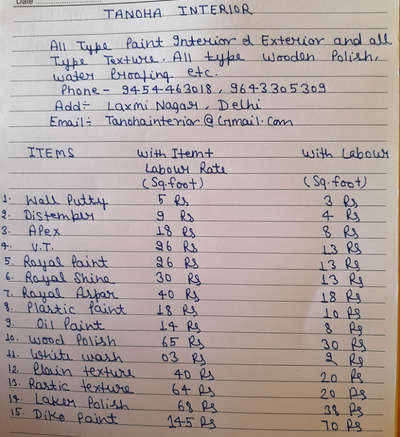 Date
TANOHA INTERIOR
All Type Paint Interior & Exterior and all
Type Texture. All type Wooden Polish,
Water Proofing etc.
Phone - 9454-463018, 9643305309
Add:- Laxmi Nagar, Delhi
Email:- Tanohainterior@Gmail.Com
ITEMS With Item+ With Labour
Labour Rate
(Sq.foot) (Sq.foot)
1. Wall Putty 5 Rs 3 Rs
2. Distember 9 Rs 4 Rs
3. Apex 18 Rs 8 Rs
4. V.T. 26 Rs 13 Rs
5. Royal Paint 26 Rs 13 Rs
6. Royal Shine 30 Rs 13 Rs
7. Royal Aspar 40 Rs 18 Rs
8. Plastic Paint 18 Rs 10 Rs
9. Oil Paint 14 Rs 8 Rs
10. Wood Polish 65 Rs 30 Rs
11. White wash 03 Rs 2 Rs
12. Plain texture 40 Rs 20 Rs
13. Rastic texture 64 Rs 20 Rs
14. Laker Polish 68 Rs 38 Rs
15. Diko Paint 145 Rs 70 Rs